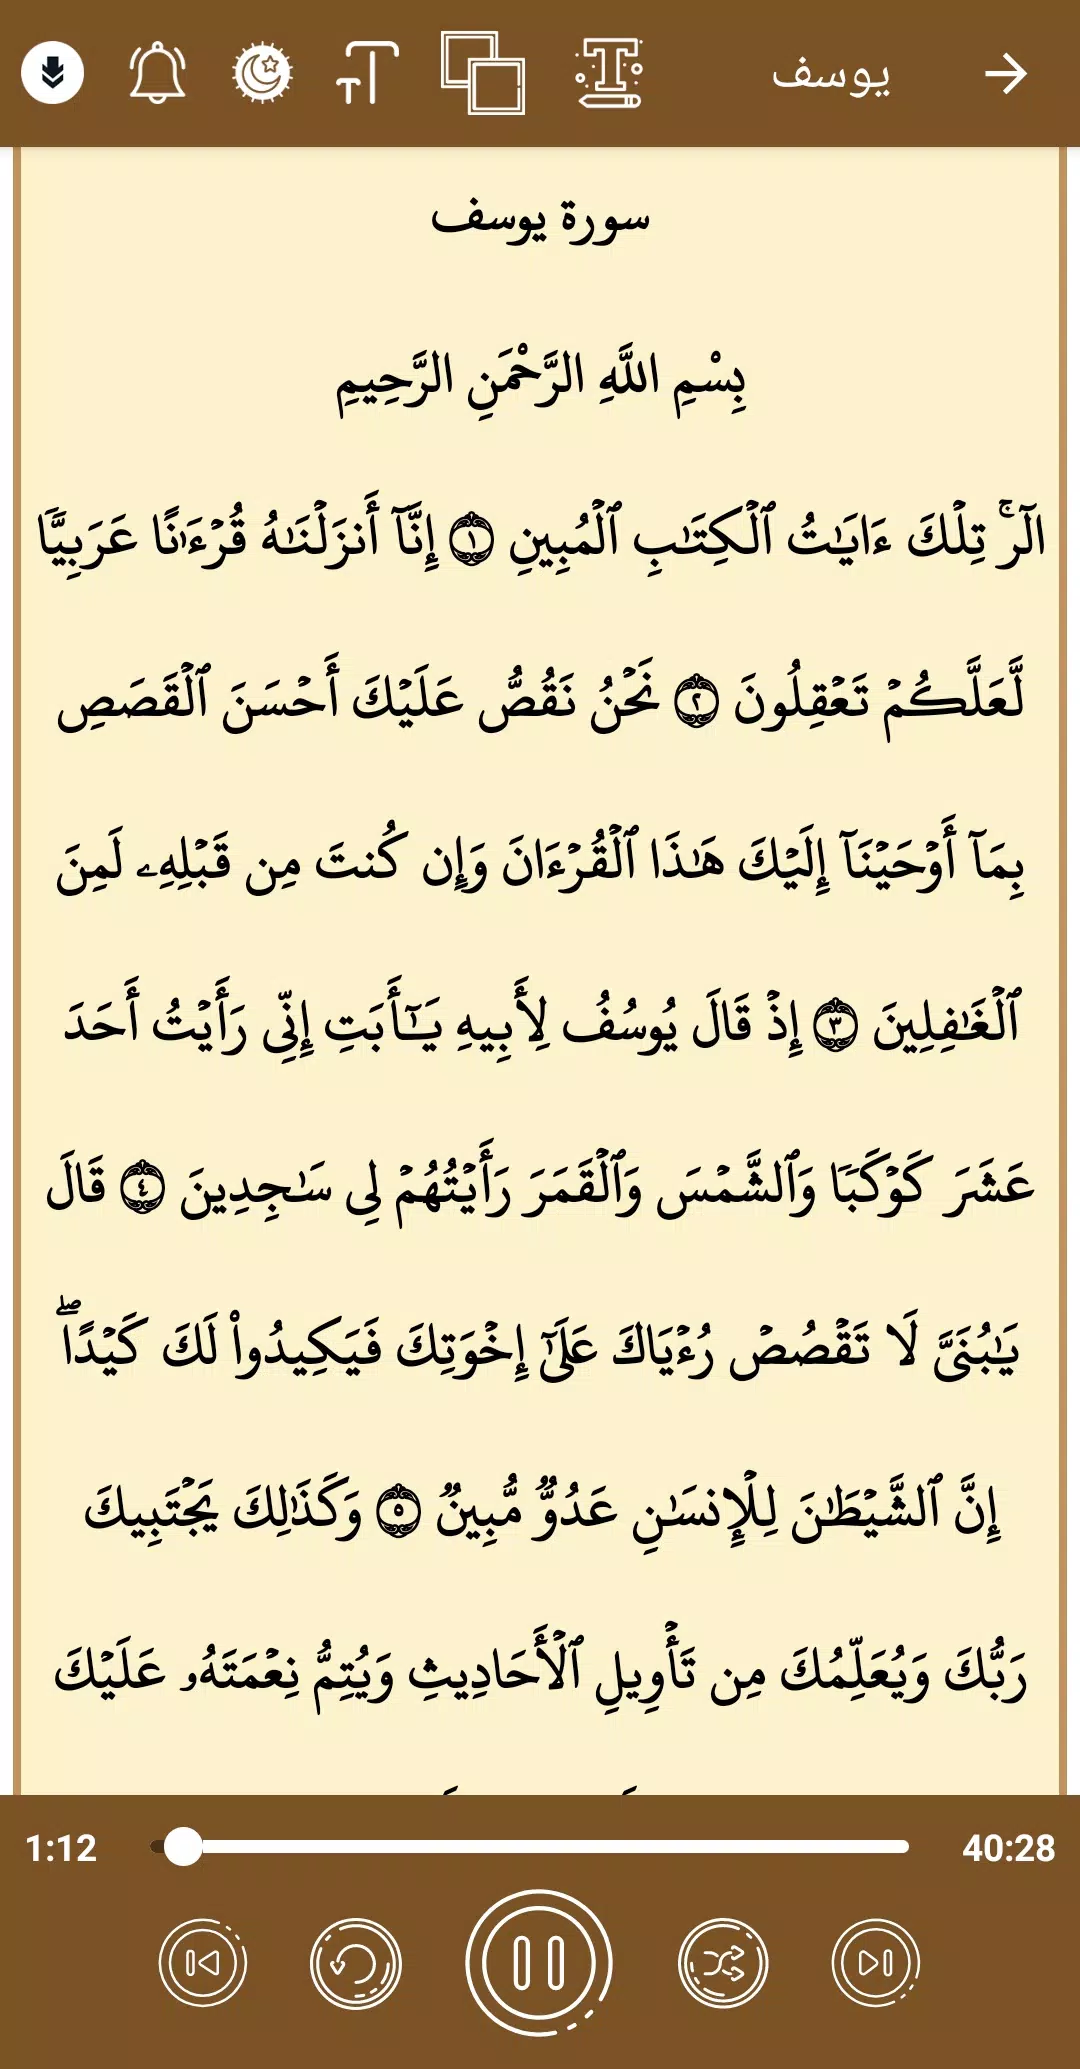 يوسف
سورة يوسف
بِسْمِ اللَّهِ الرَّحْمَنِ الرَّحِيمِ
الٓرۚ تِلۡكَ ءَايَٰتُ ٱلۡكِتَٰبِ ٱلۡمُبِينِ ١ إِنَّآ أَنزَلۡنَٰهُ قُرۡءَٰنًا عَرَبِيّٗا
لَّعَلَّكُمۡ تَعۡقِلُونَ ٢ نَحۡنُ نَقُصُّ عَلَيۡكَ أَحۡسَنَ ٱلۡقَصَصِ
بِمَآ أَوۡحَيۡنَآ إِلَيۡكَ هَٰذَا ٱلۡقُرۡءَانَ وَإِن كُنتَ مِن قَبۡلِهِۦ لَمِنَ
ٱلۡغَٰفِلِينَ ٣ إِذۡ قَالَ يُوسُفُ لِأَبِيهِ يَٰٓأَبَتِ إِنِّي رَأَيۡتُ أَحَدَ
عَشَرَ كَوۡكَبٗا وَٱلشَّمۡسَ وَٱلۡقَمَرَ رَأَيۡتُهُمۡ لِي سَٰجِدِينَ ٤ قَالَ
يَٰبُنَيَّ لَا تَقۡصُصۡ رُءۡيَاكَ عَلَىٰٓ إِخۡوَتِكَ فَيَكِيدُواْ لَكَ كَيۡدًاۖ
إِنَّ ٱلشَّيۡطَٰنَ لِلۡإِنسَٰنِ عَدُوّٞ مُّبِينٞ ٥ وَكَذَٰلِكَ يَجۡتَبِيكَ
رَبُّكَ وَيُعَلِّمُكَ مِن تَأۡوِيلِ ٱلۡأَحَادِيثِ وَيُتِمُّ نِعۡمَتَهُۥ عَلَيۡكَ
1:12 40:28